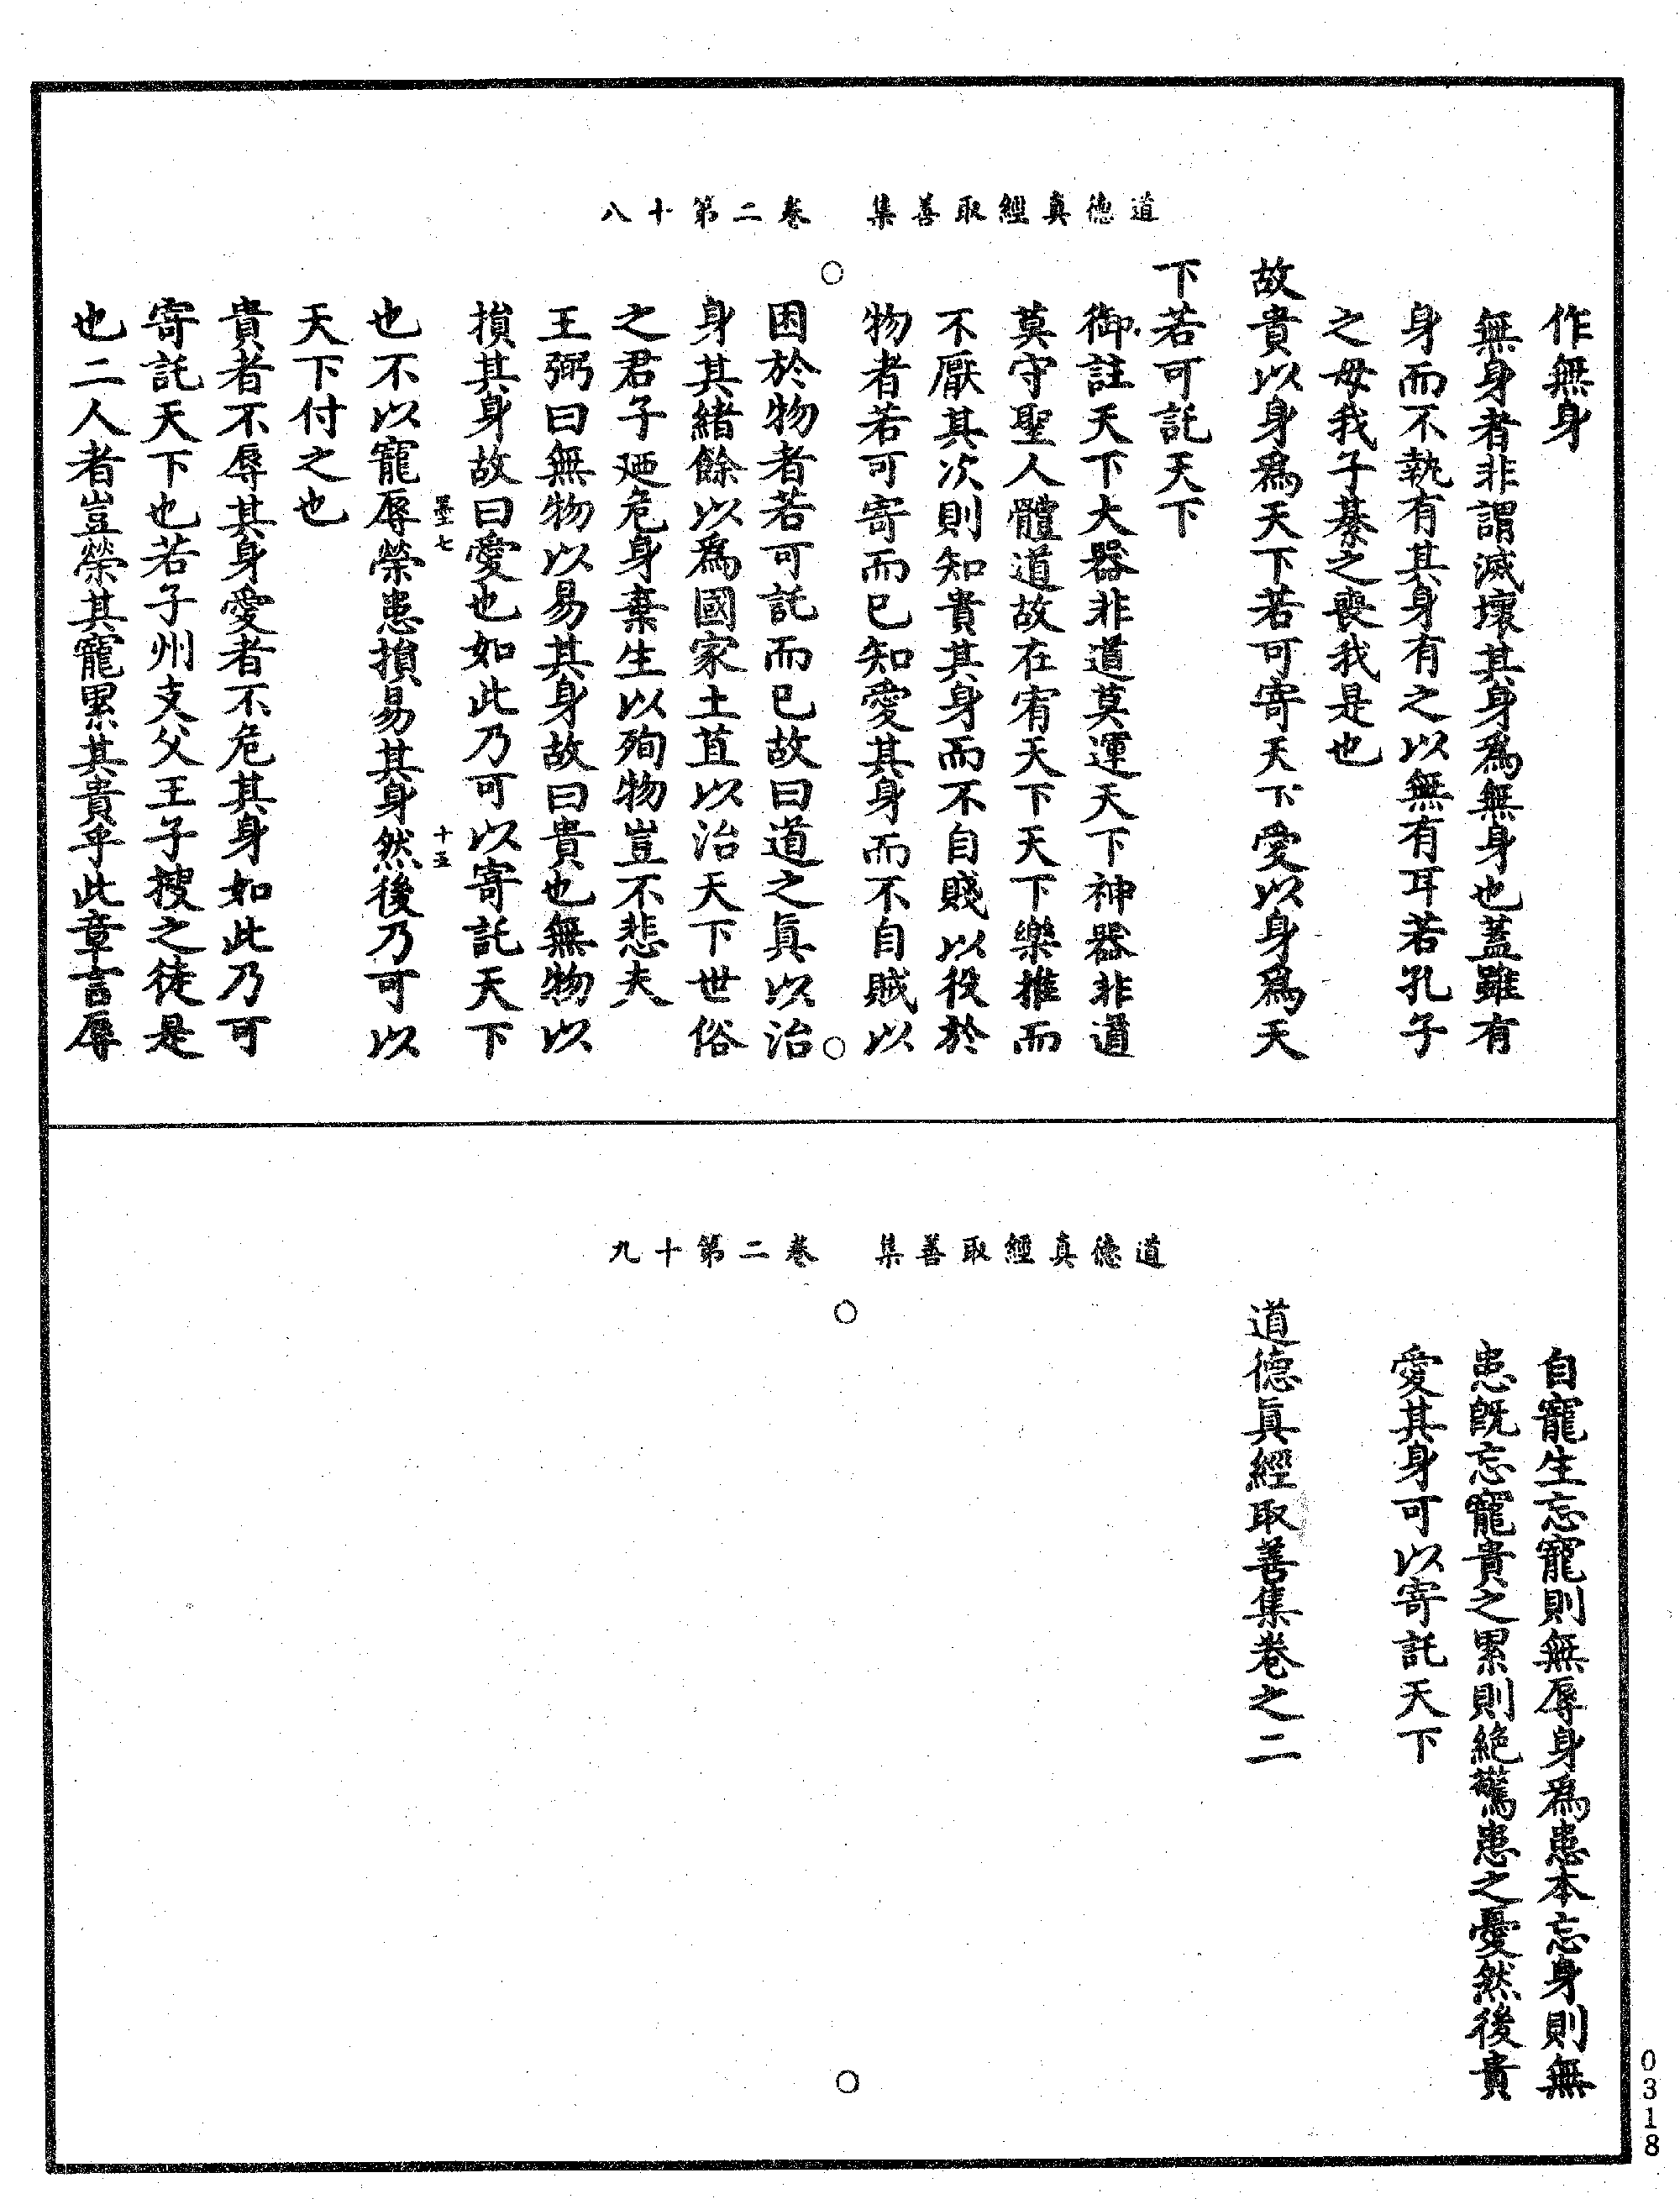 道德真經取善集　卷二第十八
作無身
無身者非謂滅壞其身爲無身也蓋雖有
身而不執有其身有之以無有耳若孔子
之毋我子綦之喪我是也
故貴以身爲天下若可寄天下愛以身爲天
下若可託天下
御註天下大器非道莫運天下神器非道
莫守聖人體道故在宥天下天下樂推而
不厭其次則知貴其身而不自賤以役於
物者若可寄而已知愛其身而不自賊以
困於物者若可託而已故曰道之眞以治
身其緒餘以爲國家土苴以治天下世俗
之君子廼危身棄生以殉物豈不悲夫
王弼曰無物以易其身故曰貴也無物以
損其身故曰愛也如此乃可以寄託天下
墨七　十五
也不以寵辱榮患損易其身然後乃可以
天下付之也
貴者不辱其身愛者不危其身如此乃可
寄託天下也若子州支父王子搜之徒是
也二人者豈榮其寵累其貴乎此章言辱
道德真經取善集　卷二第十九
自寵生忘寵則無辱身爲患本忘身則無
患旣忘寵貴之累則絕驚患之憂然後貴
愛其身可以寄託天下
道德眞經取善集卷之二
0318